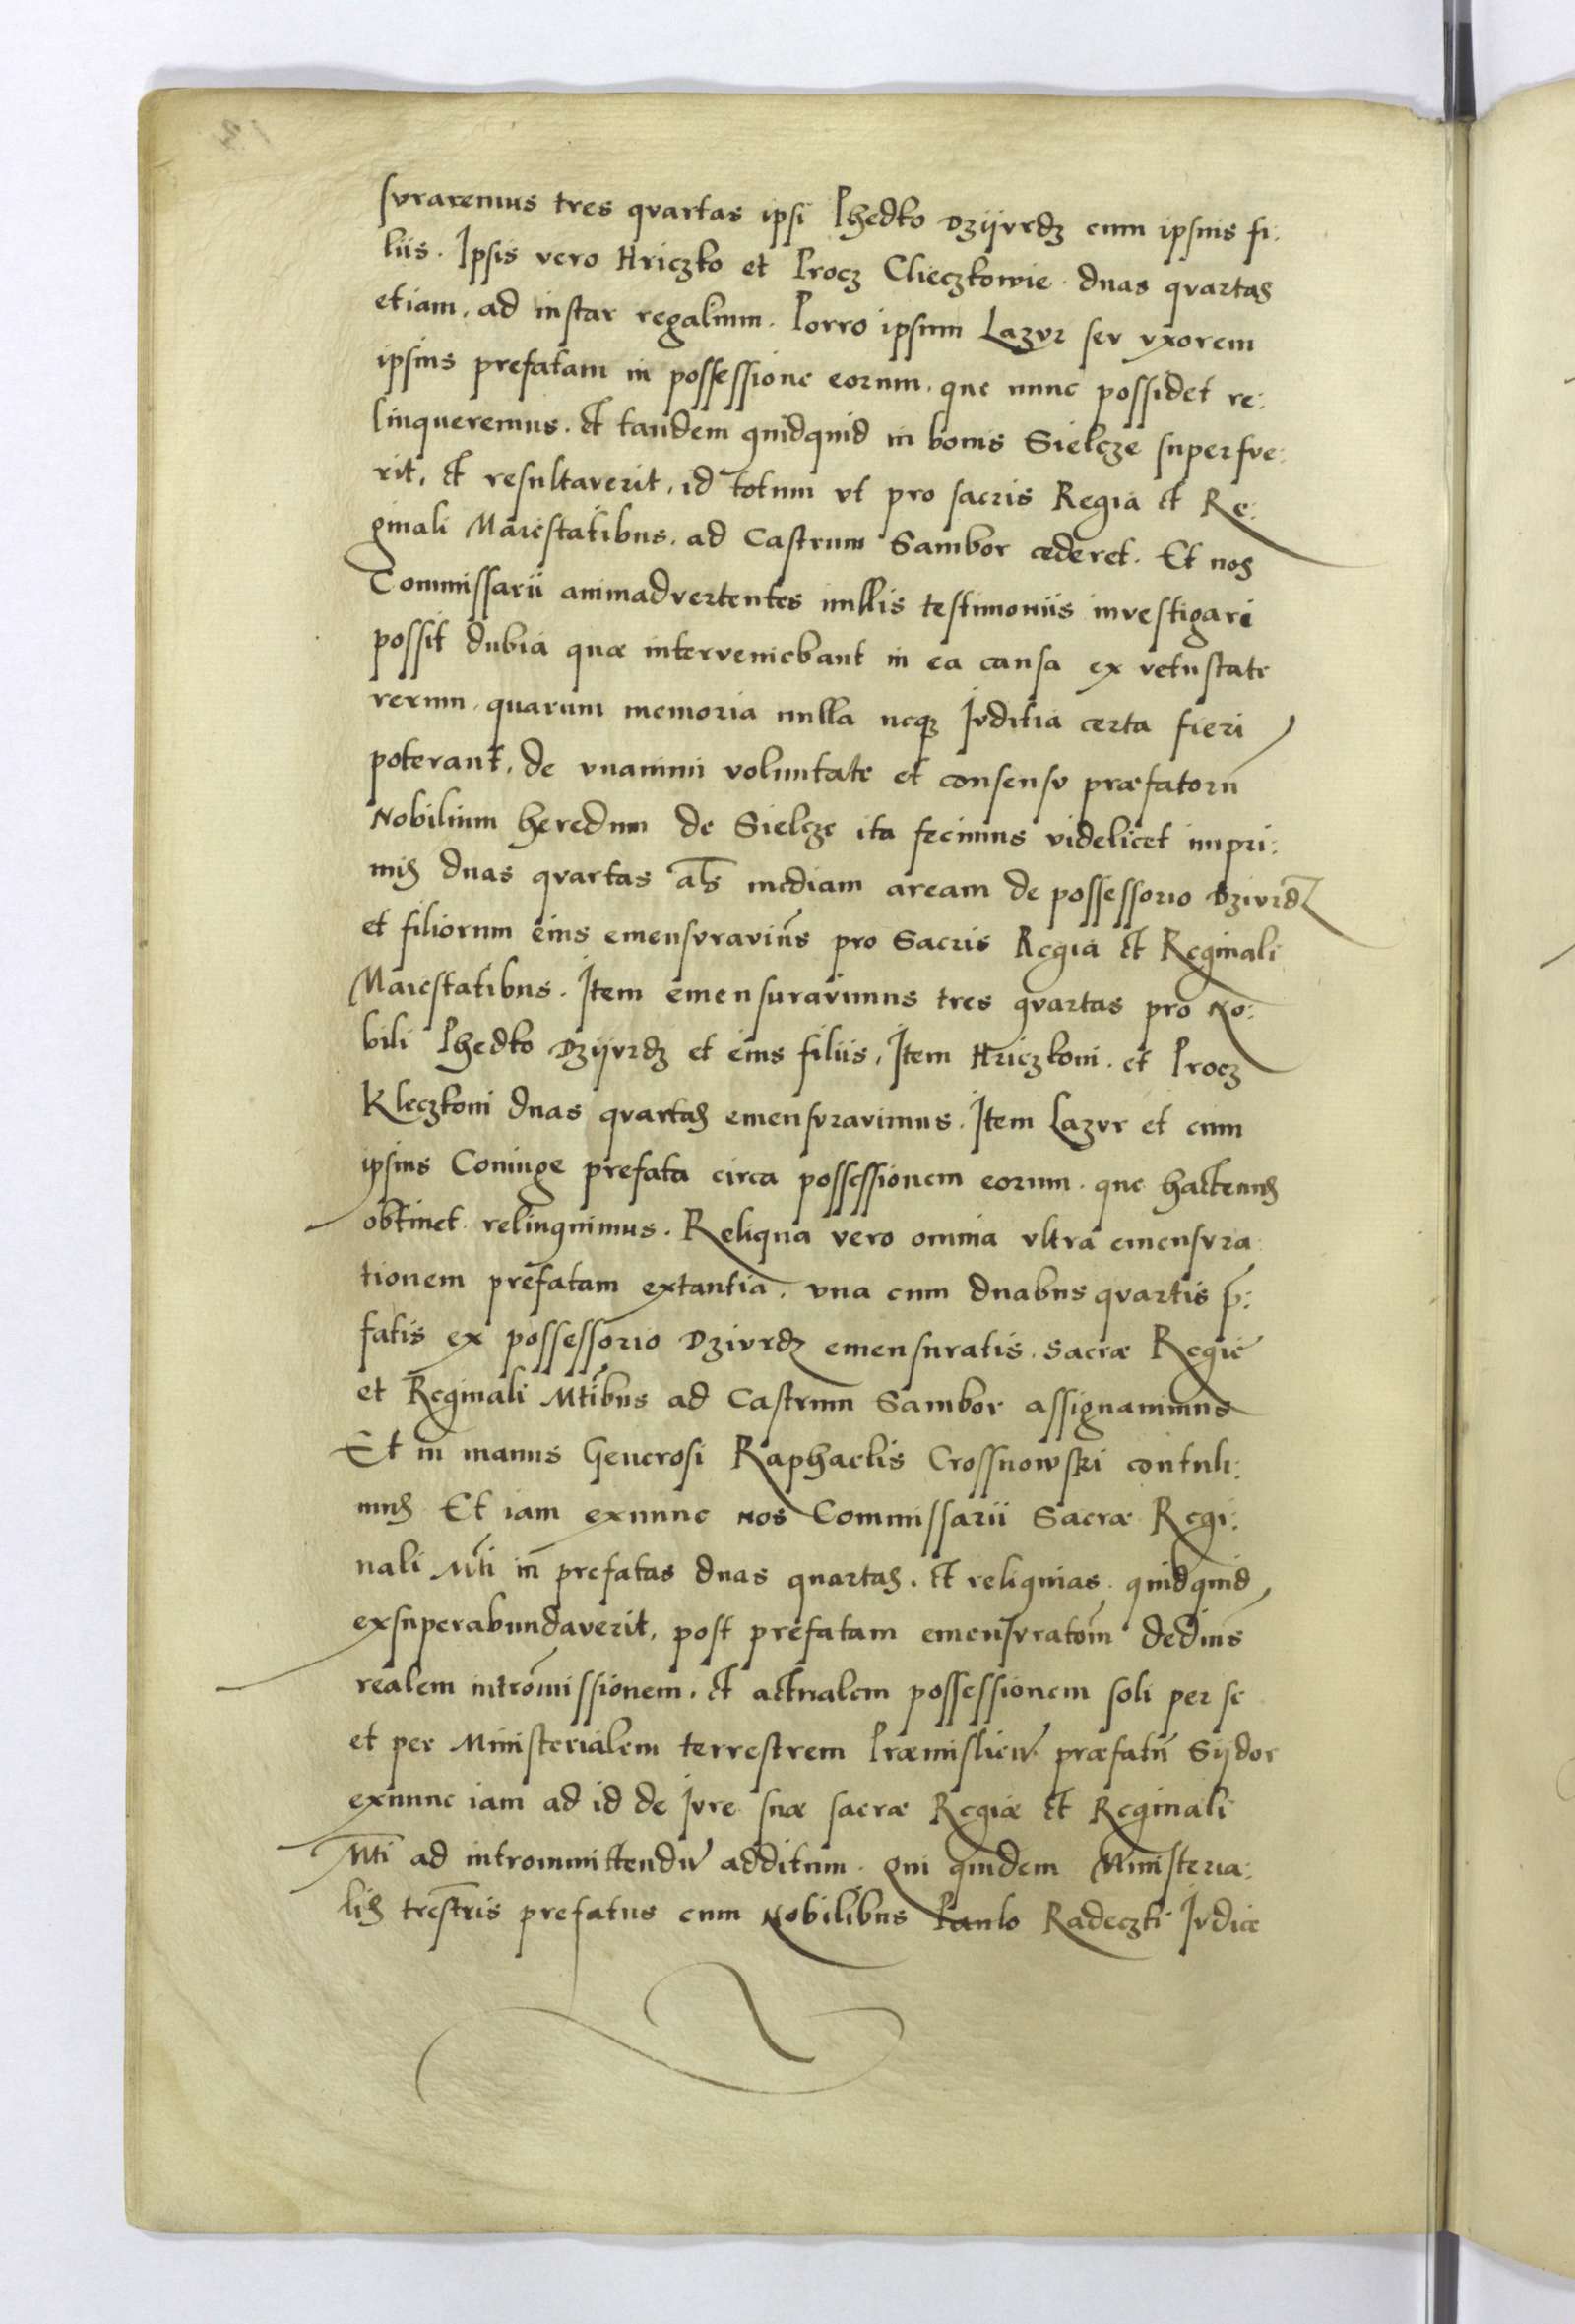 suraremus tres quartas ipsi Phedko Dzijurdz cum ipsius fi:
liis. Ipsis vero Hriczko et Procz Clieczkowie. duas quartas
etiam. ad instar regalium. Porro ipsum Lazur seu vxorem
ipsius prefatam in possessione eorum. que nunc possidet re:
linqueremus. et tandem quidquid in bonis Sielcze superfue:
rit, et resultaverit, id totum vt pro sacris Regia et Re:
ginali Maiestatibus. ad Castrum Sambor cederet. Et nos
Commissarii animadvertentes nullis testimoniis investigari
possit dubia quæ interveniebant in ea causa ex vetustate
rerum, quarum memoria nulla neque Iuditia certa fieri
poterant, de vnanimi voluntate et consensu præfatorũ
Nobilium heredum de Sielcze ita fecimus videlicet impri:
mis duas quartas als mediam aream de possessorio Dziurdz
et filiorum eius emensuravim̃s pro Sacris Regia et Reginali
Maiestatibus. Item emensuravimus tres quartas pro No:
bili Phedko Dzijurdz et eius filiis, Item Hriczkoni. et Procz
Kleczkoni duas quartas emensuravimus. Item Lazur et cum
ipsius Coniuge prefata circa possessionem eorum. que hactenus
obtinet relinquimus. Reliqua vero omnia vltra emensura
tionem prefatam extantia. vna cum duabus quartis p̃:
fatis ex possessorio Dziurdz emensuratis. Sacræ Regie
et Reginali Mtibus ad Castrum Sambor assignamimus
Et in manus Generosi Raphaelis Crossnowski contuli:
mus Et iam exnunc nos Commissarii Sacræ Regi:
nali Mti in prefatas duas quartas. et reliquias. quidquid
exsuperabundaverit, post prefatam emensuratom̃ dedim̃s
realem intromissionem. et actualem possessionem soli per se
et per Ministerialem terrestrem Præmislieñ præfatũ Sijdor
exnunc iam ad id de Iure suæ sacræ Regiæ et Reginali
Mti ad intrommittendũ additum. Qui quidem Ministeria:
lis trestris prefatus cum Nobilibus Paulo Radeczki Iudice